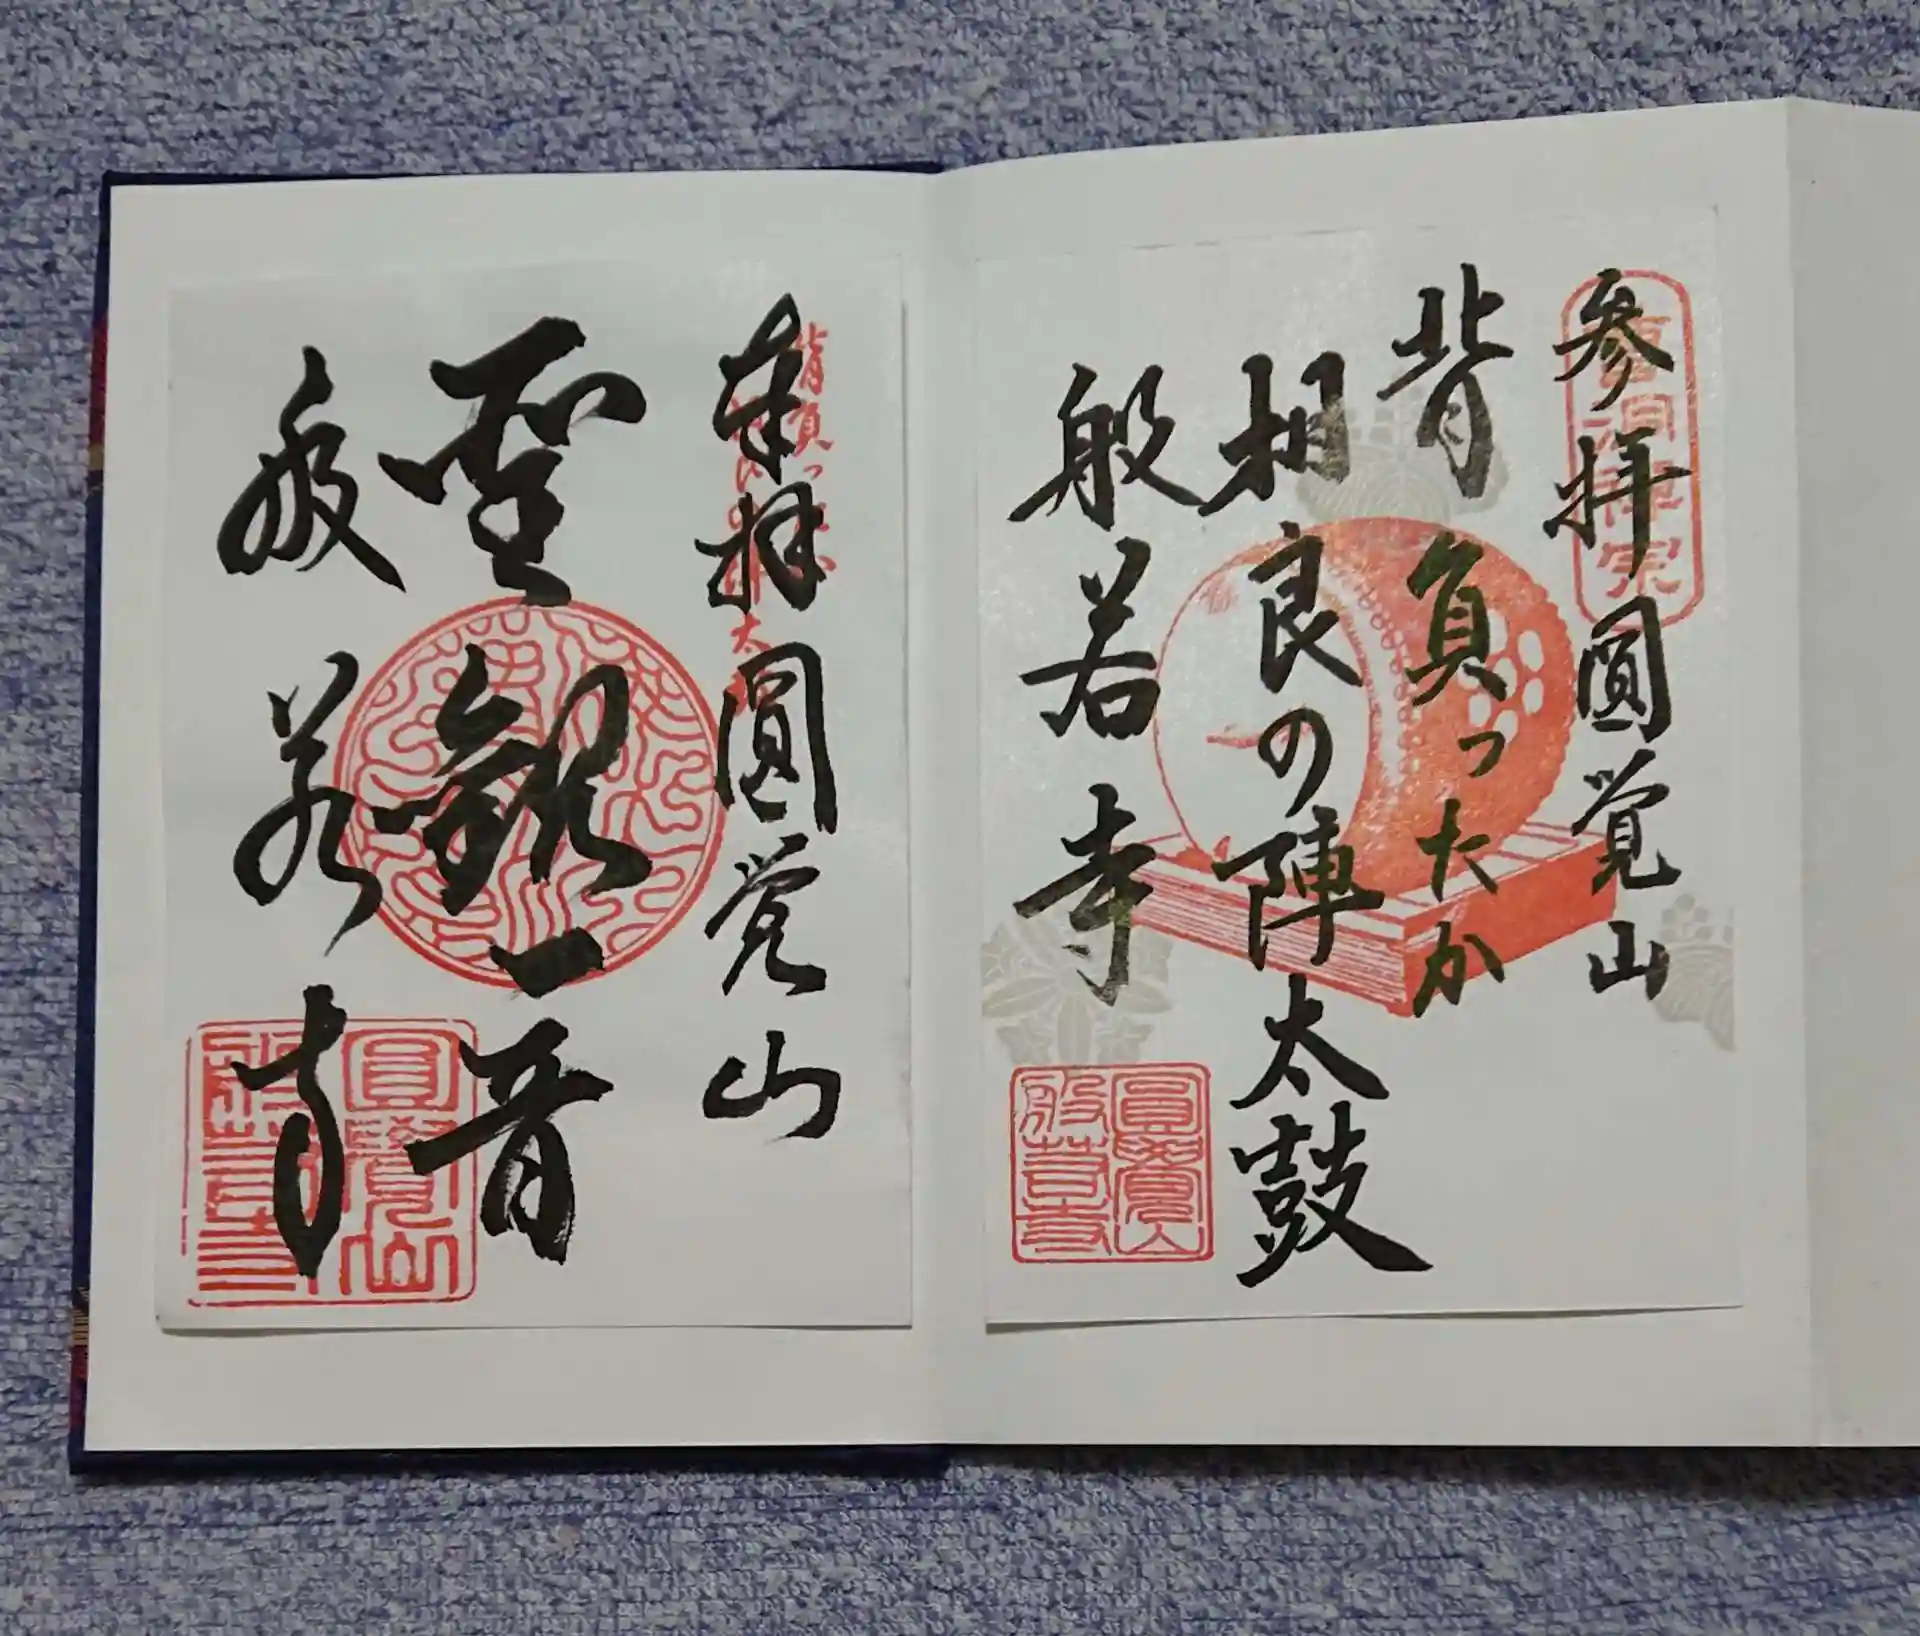 参拝圓覚山
曹洞禅宗
背負ったか
相良の陣太鼓
般若寺
圓覺山
般若寺
奉拝圓覚山
背負ったか
相良の陣太鼓
聖観音
般若寺
圓覺山
般若寺